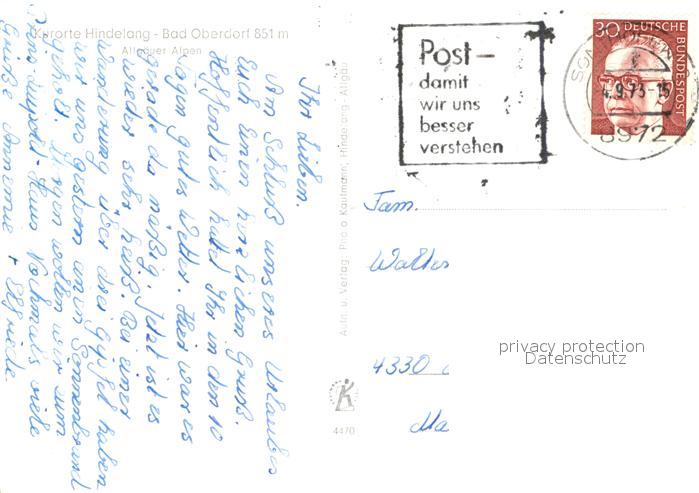 Kurorte Hindelang - Bad Oberdorf 851 m
Allgäuer Alpen
Ihr Lieben.
Vom Schluß unseres Urlaubes
Euch einen herzlichen Gruß.
Hoffentlich habt Ihr in den 10
Tagen gutes Wetter. Hier war es
gerade so mäßig. Jetzt ist es
wieder sehr heiß. Bei einer
Wanderung über drei Gipfel haben
wir uns gestern einen Sonnenbrand
geholt. Morgen wollen wir zum
Haus Nochmals viele
Grüße Annemie + Elfriede
Autn. u. Verlag Photo Kaufmann, Hindelang - Allgäu
4470
Post-
damit
wir uns
besser
verstehen
30 DEUTSCHE
BUNDESPOST
SON
4.9.73-15
8972
Fam.
Walter
4330
Mü
privacy protection
Datenschutz